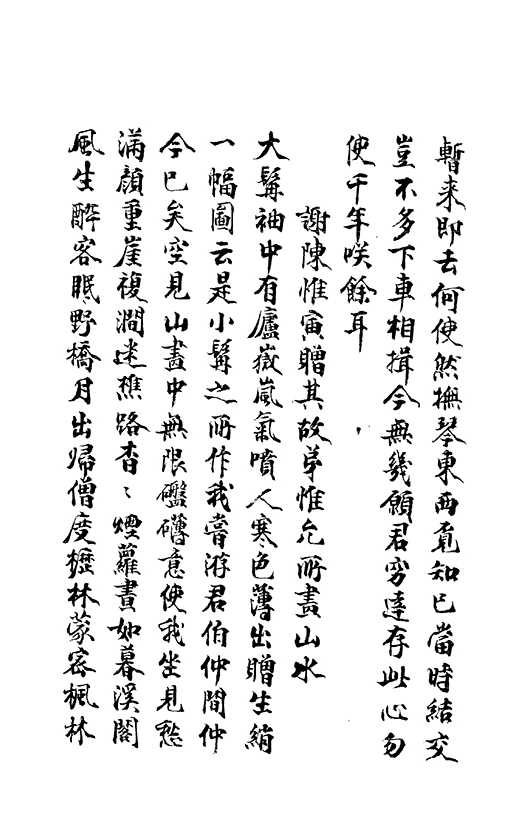 暫来即去何使然撫琴東西覓知已當時結交
豈不多下車相揖今無幾願君窮達存此心勿
使千年咲餘耳
謝陳惟寅贈其故弟惟允所畫山水
大髯袖中有廬嶽嵐氣噴人寒色薄出贈生綃
一幅圖云是小髯之所作我嘗游君伯仲間仲
今已矣空見山畫中無限礧礴意使我坐見愁
滿顔重崖複澗迷樵路杳〻煙蘿晝如暮溪閣
風生醉客眠野橋月出歸僧度櫪林蒙密楓林